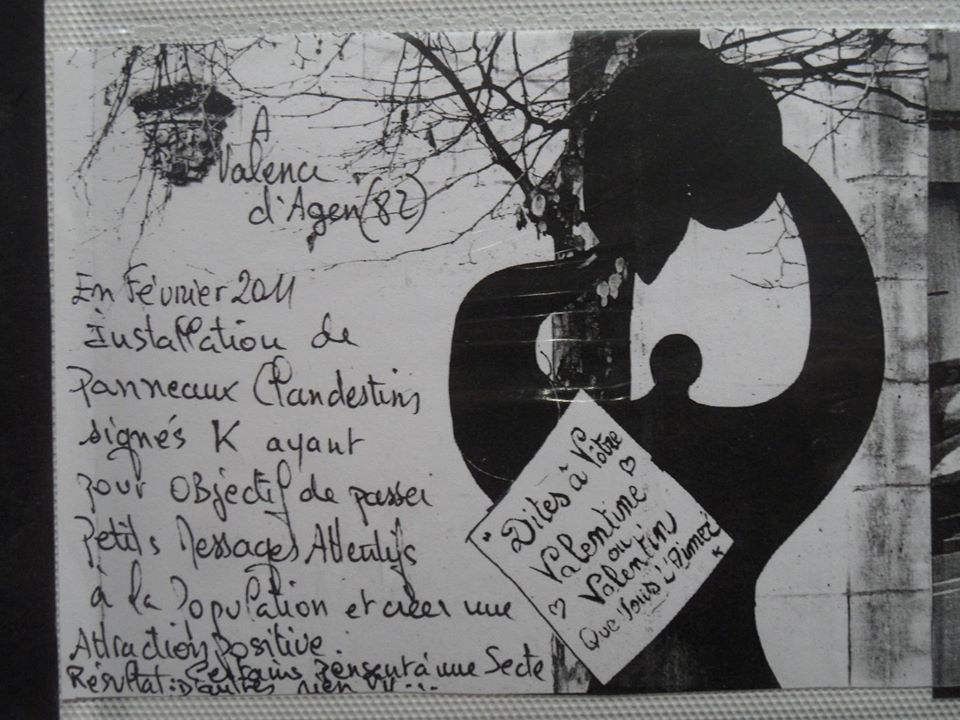 A
Valence
d'Agen (82)
En Février 2011
Installation de
panneaux Clandestins
signés K ayant
pour objectif de passer
Petits Messages Attentifs
à la Population et créer une
Attraction positive.
Résultat : Certains pensent à une Secte
D'autres rien vu...
"Dites à Vôtre
Valentine ♡
ou
Valentin
♡ Que Vous L'Aimez"
K